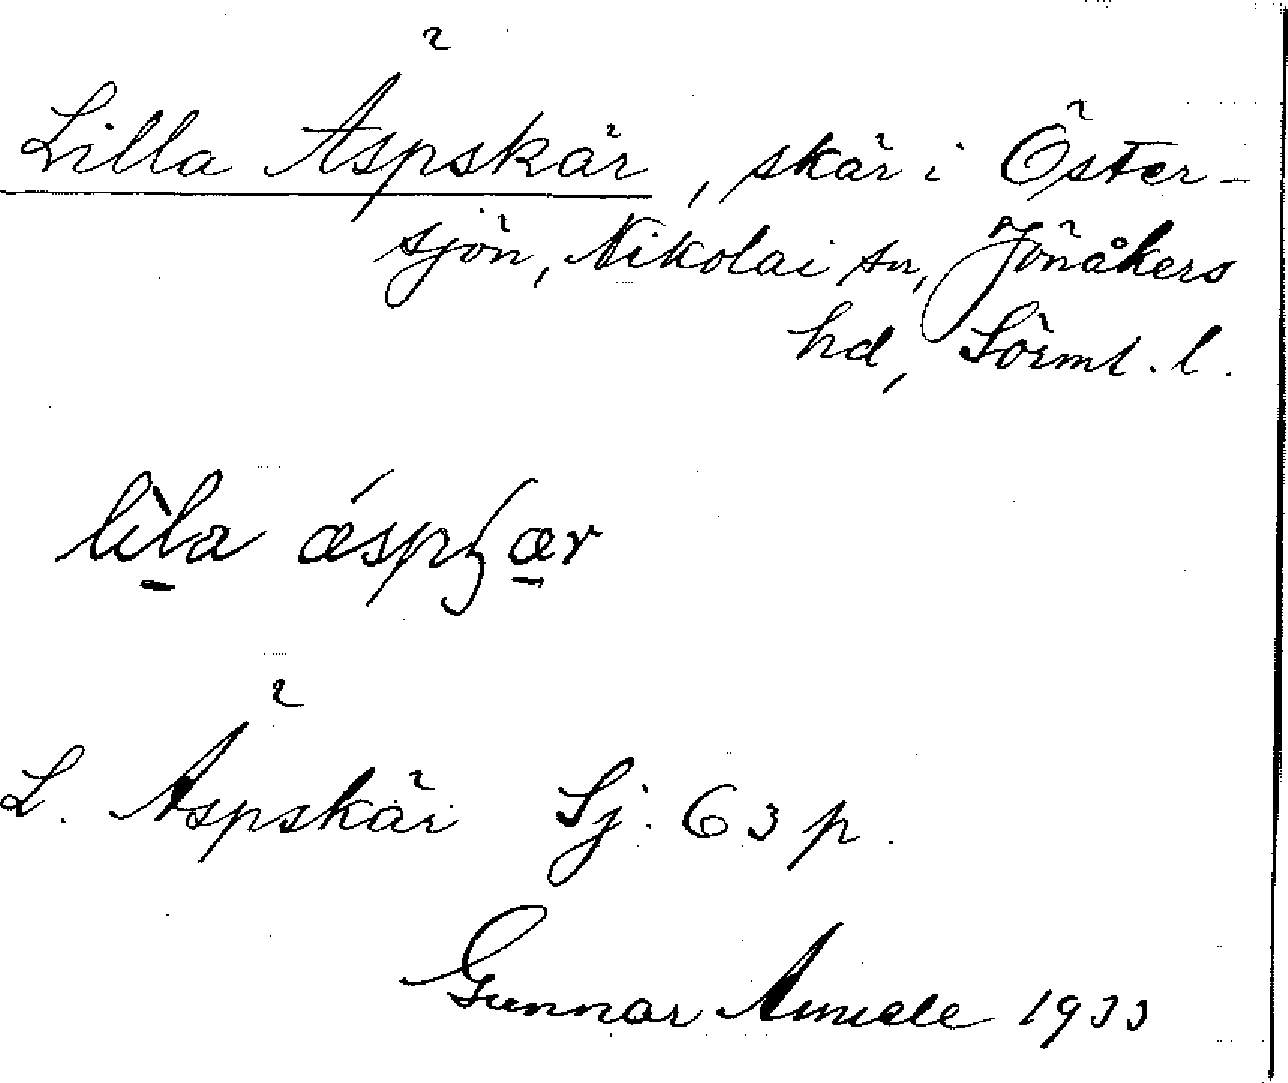 Lilla Äspskär, skär i Öster-
sjön, Nikolai sn, Jönåkers
hd, Sörml. l.
lìla ǽspʃær
L. Äspskär Sj. 63 p.
Gunnar 1933